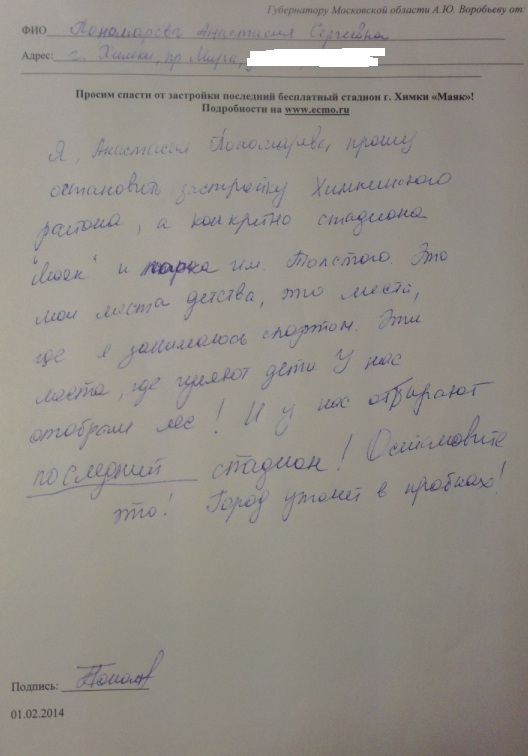 Губернатору Московской области А.Ю. Воробьеву от:
ФИО Пономарева Анастасия Сергеевна
Адрес: г. Химки, пр Мира,
Просим спасти от застройки последний бесплатный стадион г. Химки «Маяк»!
Подробности на www.ecmo.ru
Я, Анастасия Пономарева, прошу
остановить застройку Химкинского
района, а конкретно стадиона
"Маяк" и парка им. Толстого. Это
мои места детства, это места,
где я занимаюсь спортом. Эти
места, где гуляют дети. У нас
отобрали лес! И у нас отбирают
последний стадион! Остановите
это! Город утонет в пробках!
Подпись:
01.02.2014